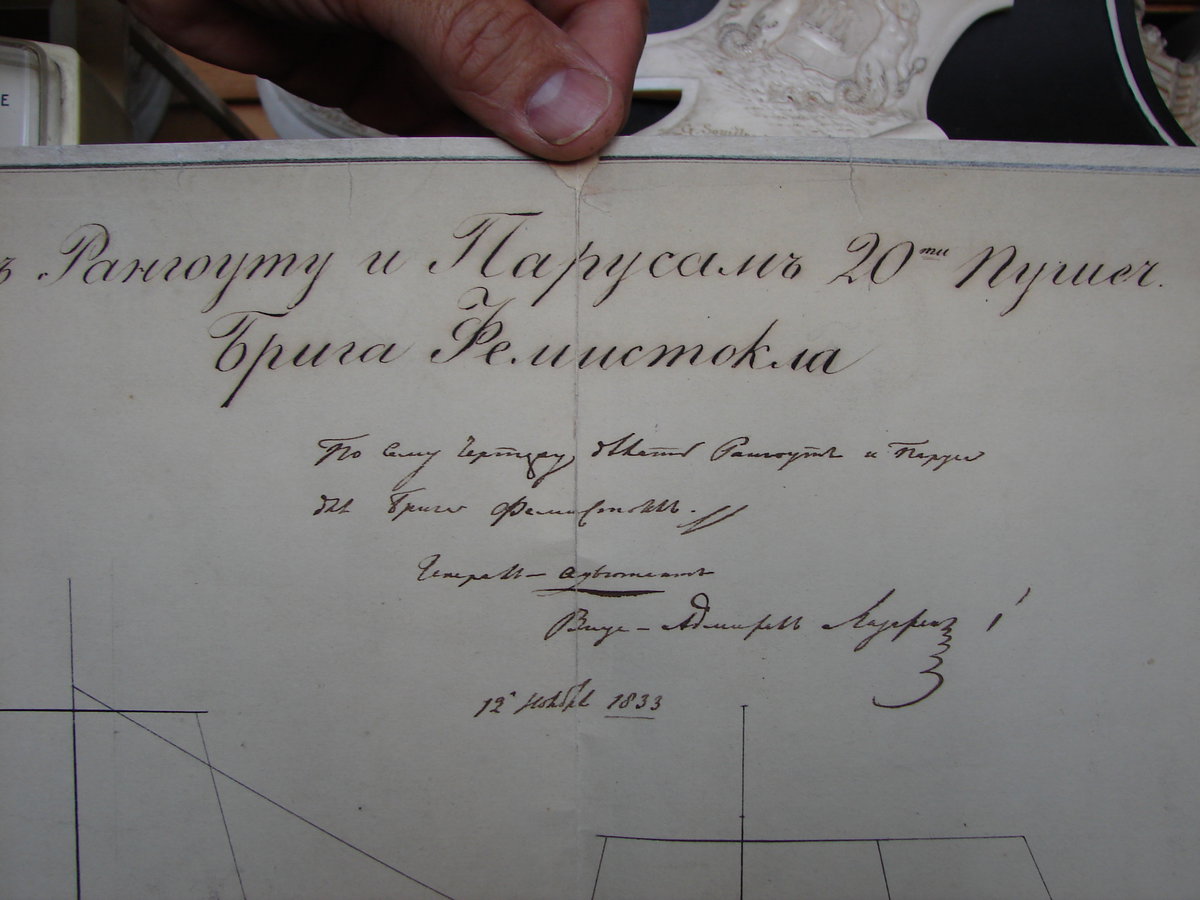 ъ Рангоуту и Парусамъ 20ти Пушеч.
Брига Фемистокла
По сему чертежу дѣлать Рангоутъ и Паруса
для Брига Фемистоклъ.
Генералъ-адъютантъ
Вице-Адмиралъ Лазаревъ
12 Ноября 1833
E